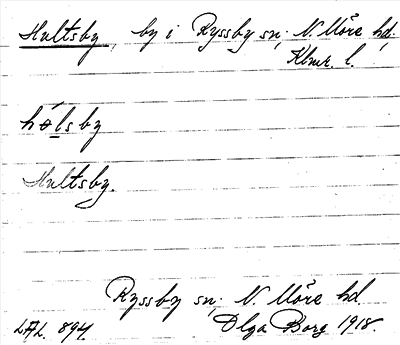 Hultsby, by i Ryssby sn, N. Möre hd.
Klmr. l.
hólsby
Hultsby.
Ryssby sn, N. Möre hd
LAL. 894. Olga Borg 1918